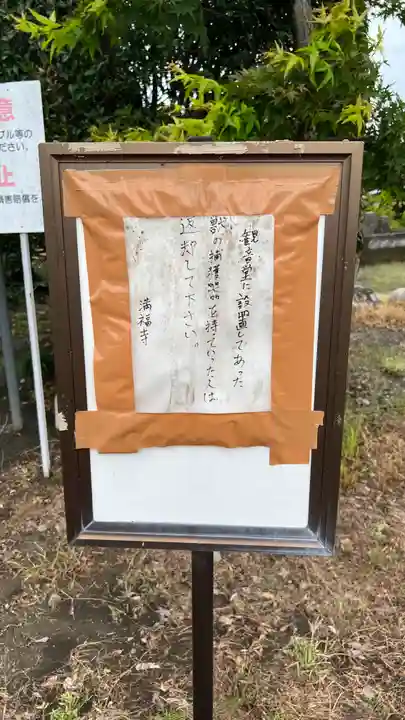 観音堂に設置してあった
獣の捕獲器を持っていった人は
返却して下さい。
満福寺
意
ブル等の
ださい。
止
損害賠償を